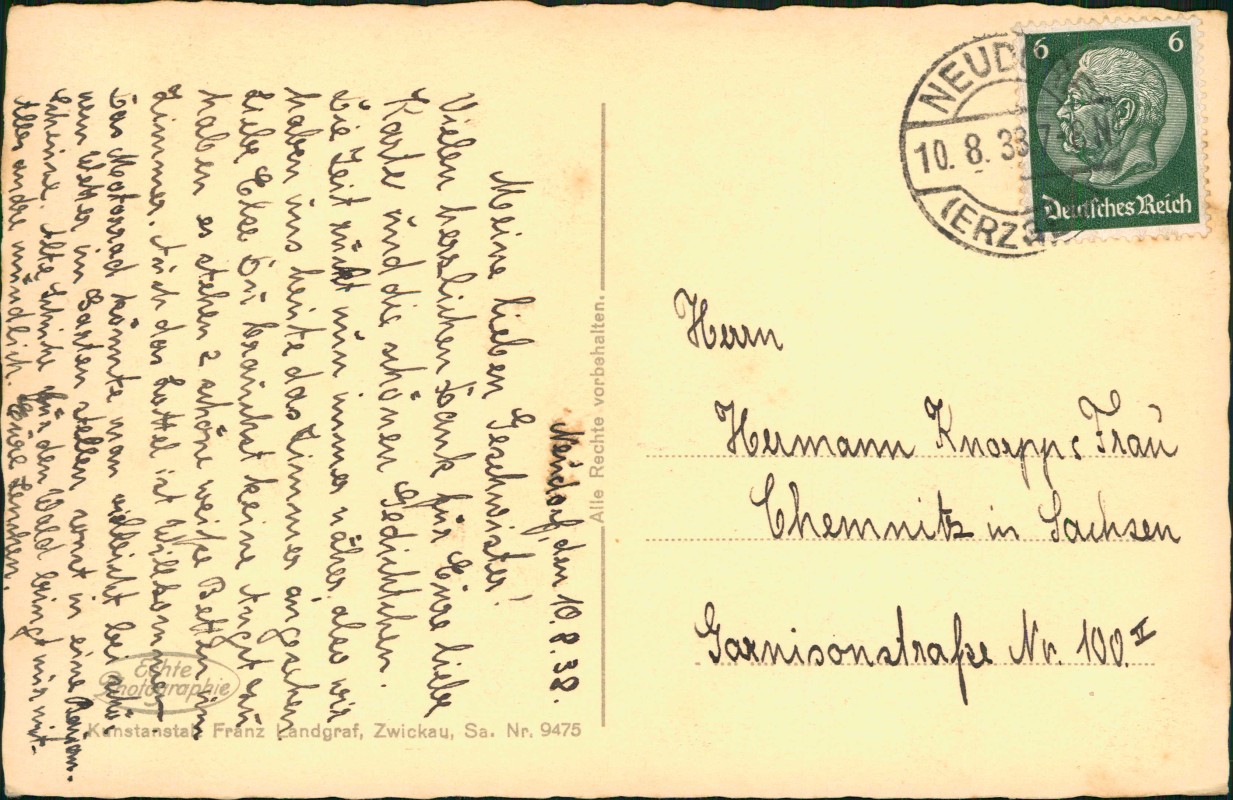 Neudorf, den 10.8.38.
Meine lieben Geschwister!
Vielen herzlichen Dank für Eure liebe
Karte und die schönen Gedichtchen.
Die Zeit rückt nun immer näher also wir
haben uns heute das Zimmer angesehen
Liebe Else Du brauchst keine Angst zu
haben es stehen 2 schöne weiße Betten im
Zimmer. Auch das ist Willkommen
Das Motorrad könnte man vielleicht bei schö-
nem Wetter im Garten stellen sonst in eine
Scheune. Alte Schuhe für den Wald bringt mir mit.
Alles andre mündlich. Eure Lenchen.
Alle Rechte vorbehalten.
Echte
Photographie
Kunstanstalt Franz Landgraf, Zwickau, Sa. Nr. 9475
NEUDORF
10. 8. 38
(ERZGEB.
6 6
Deutsches Reich
Herrn
Hermann Knorpps Frau
Chemnitz in Sachsen
Garnisonstraße Nr. 100.II